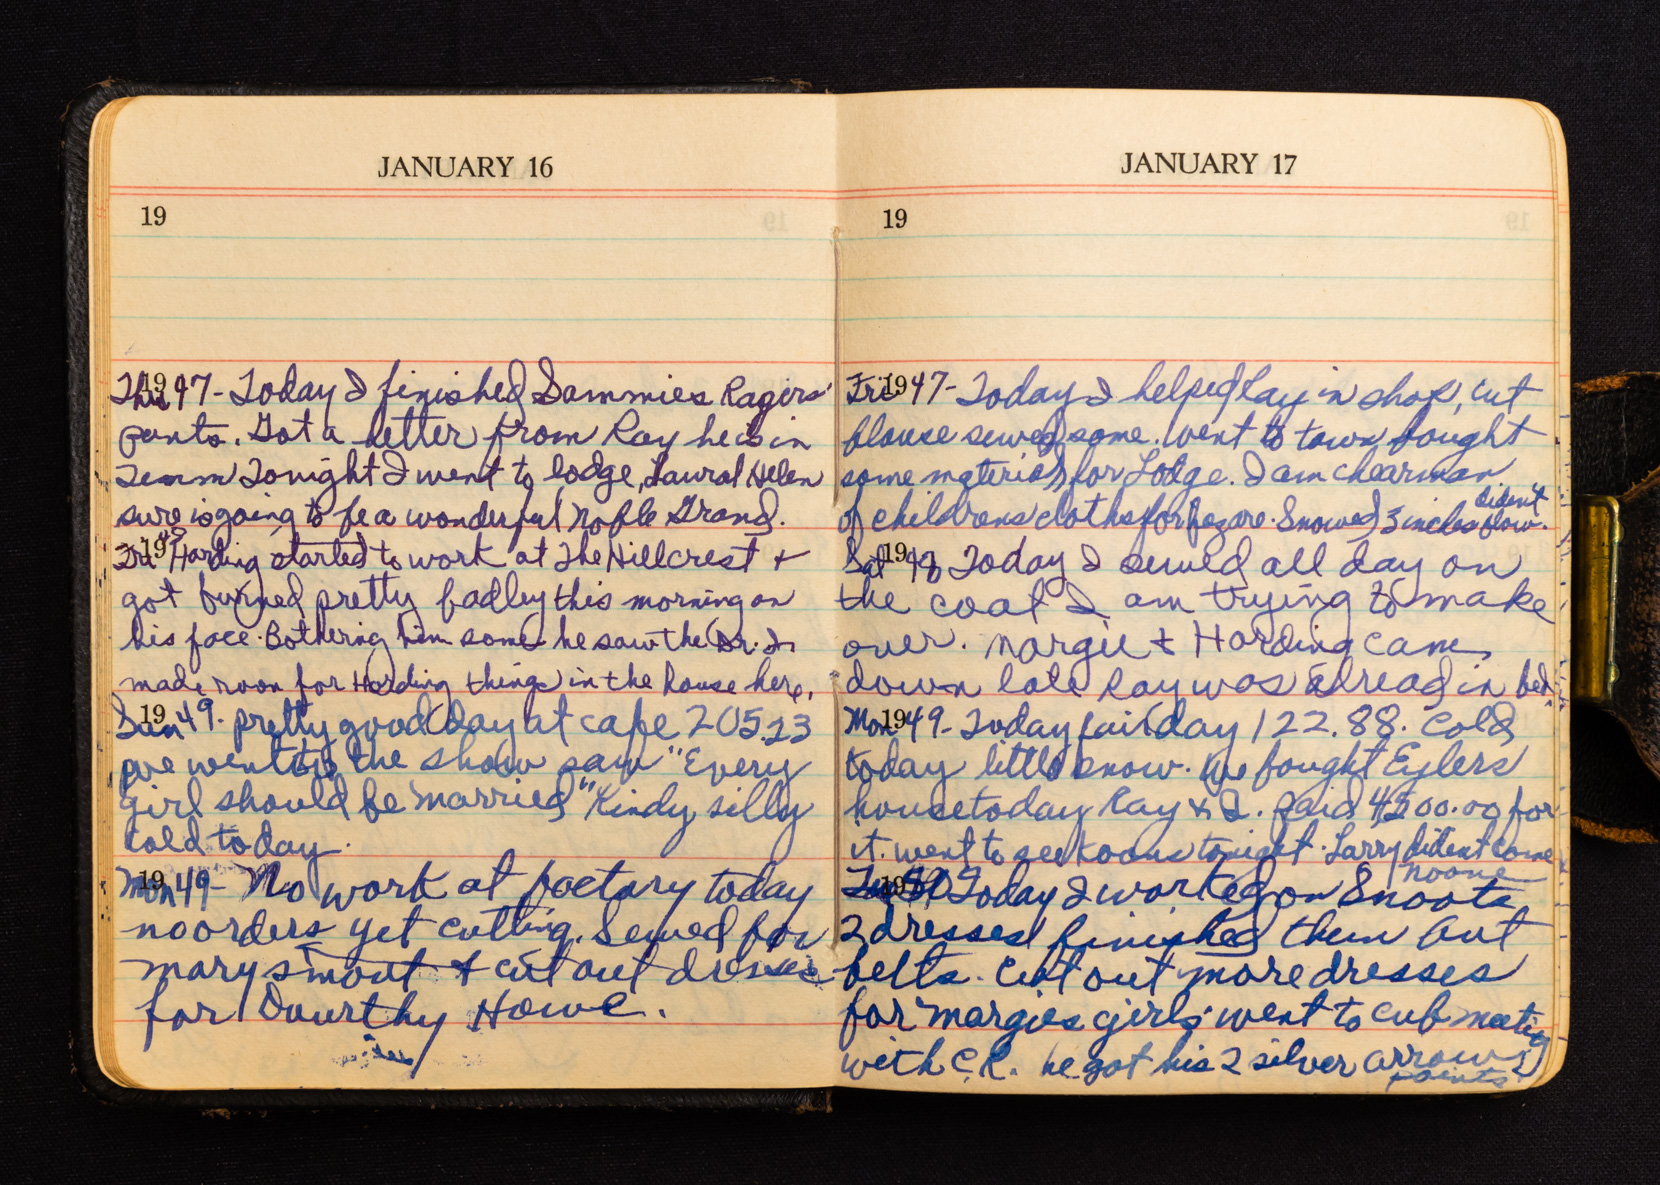 JANUARY 16
19
19
Thu 47- Today I finished Sammies Ragers'
pants. Got a letter from Ray he is in
Tenn Tonight I went to lodge, Laural Helen
sure is going to be a wonderful Noble Grand.
19
Fri 48 Harding started to work at The Hillcrest +
got burned pretty badley this morning on
his face. Bothering him some he saw the Dr. I
made room for Harding things in the house here,
19
Sun 49. pretty good day at cafe 205.23
we went to the show saw "Every
girl should be married" Kindy silly
cold today.
19
Mon 49- No work at factary today
no orders yet cutting. Sewed for
mary smout + cut out dresses
for Dourthy Howe.
JANUARY 17
19
19
Fri 47- Today I helped Ray in shop, cut
blouse sewed some. went to town bought
some material for Lodge. I am chearman
of childrens cloths for bezare. Snowed 3 inches dident blow.
19
Sat 48 Today I sewed all day on
the coat I am trying to make
over. Margie + Harding came
down late Ray was alread in bed.
19
Mon 49- Today fair day 122.88. Cold
today little snow. We bought Eylers
house today Ray & I. paid 4500.00 for
it. went to see Koons tonight. Larry dident come
noone
19
Today I worked on Smoots
2 dresses finished them but
belts. Cut out more dresses
for margies girls went to cub meeting
with C.R. he got his 2 silver arrows
points